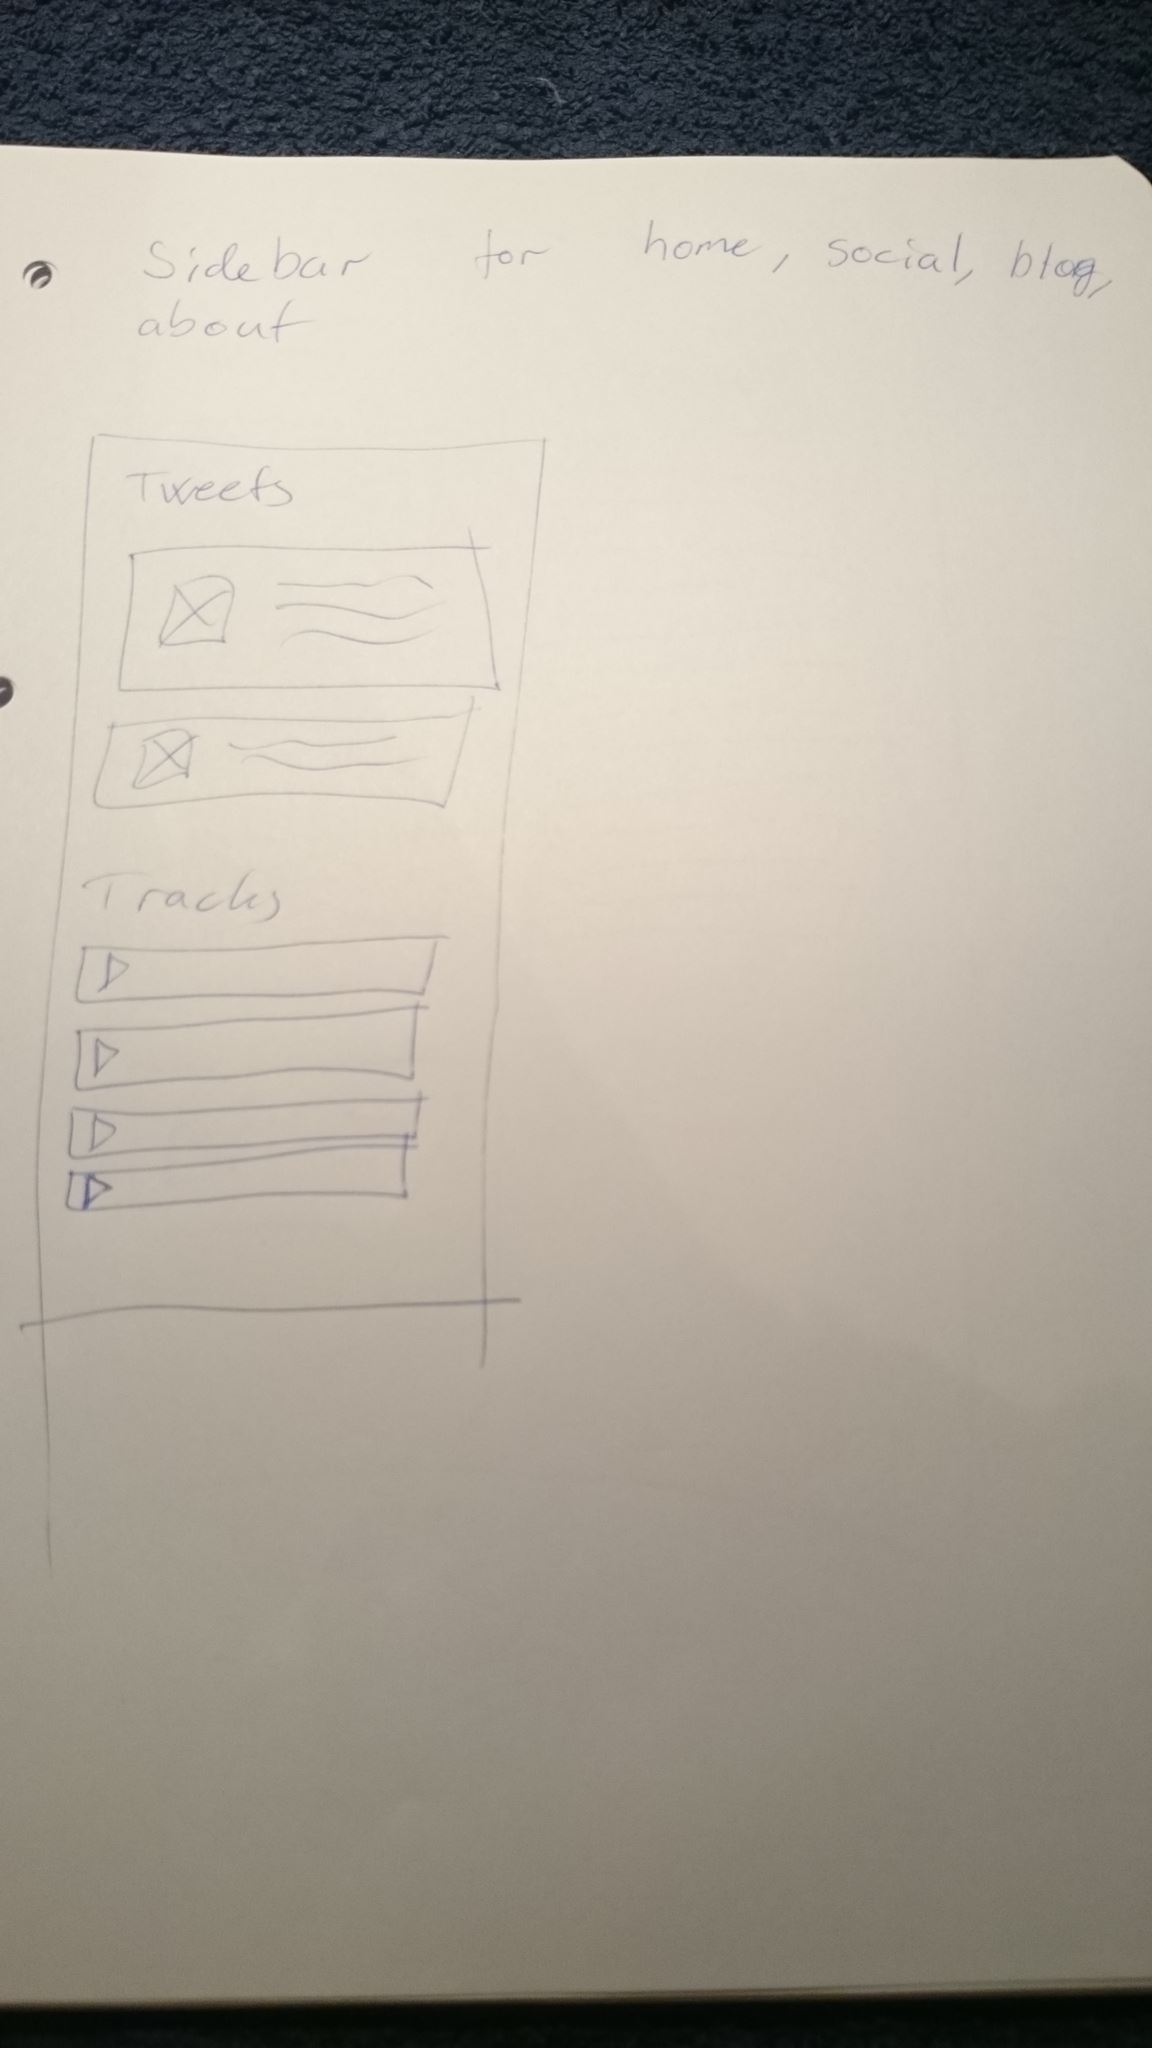 Sidebar for home, social, blog,
about
Tweets
Tracks